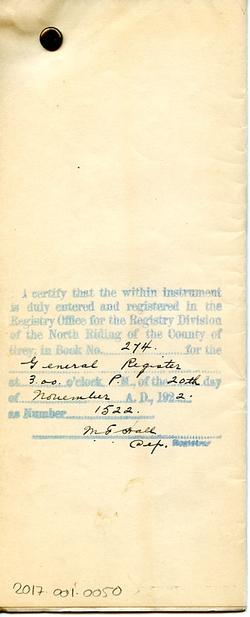 I certify that the within instrument
is duly entered and registered in the
Registry Office for the Registry Division
of the North Riding of the County of
Grey, in Book No. 274. for the
General Register
at 3.00. o'clock P. M., of the 20th day
of November A. D., 1922.
as Number 1522.
Hall
Dep. Registrar
2017.001.0050